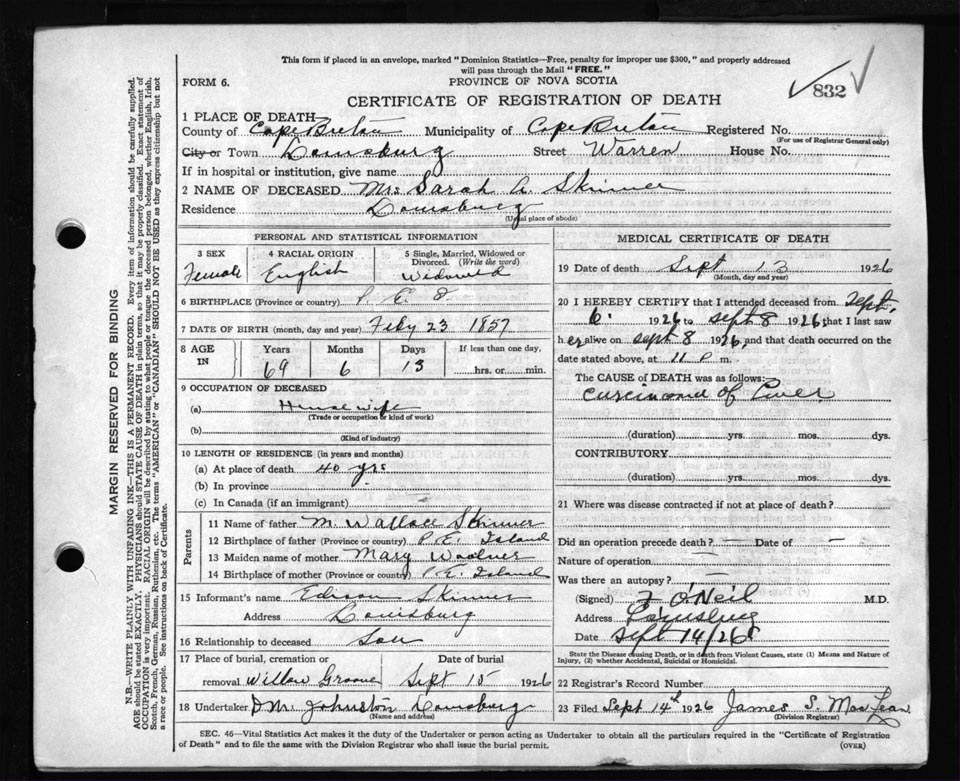 This form if placed in an envelope, marked "Dominion Statistics—Free, penalty for improper use $300," and properly addressed
will pass through the Mail "FREE."
832
FORM 6.
PROVINCE OF NOVA SCOTIA
CERTIFICATE OF REGISTRATION OF DEATH
1 PLACE OF DEATH—
County of Cape Breton Municipality of Cape Breton Registered No.
(For use of Registrar General only)
City or Town Louisburg Street Warren House No.
If in hospital or institution, give name
2 NAME OF DECEASED Mrs Sarah A. Skinner
Residence Louisburg
(Usual place of abode)
PERSONAL AND STATISTICAL INFORMATION
3 SEX 4 RACIAL ORIGIN 5 Single, Married, Widowed or Divorced. (Write the word)
Female English Widowed
6 BIRTHPLACE (Province or country) P. E. I
7 DATE OF BIRTH (month, day and year) Feby 23 1857
8 AGE IN Years Months Days If less than one day,
69 6 13 hrs. or min.
9 OCCUPATION OF DECEASED
(a) Housewife
(Trade or occupation or kind of work)
(b)
(Kind of industry)
10 LENGTH OF RESIDENCE (in years and months)
(a) At place of death 40 yrs
(b) In province
(c) In Canada (if an immigrant)
Parents
11 Name of father M. Wallace Skinner
12 Birthplace of father (Province or country) P. E. Island
13 Maiden name of mother Mary
14 Birthplace of mother (Province or country) P. E. Island
15 Informant's name Edison Skinner
Address Louisburg
16 Relationship to deceased Son
17 Place of burial, cremation or removal Date of burial
Willow Groove Sept 15 1926
18 Undertaker D M. Johnston Louisburg
(Name and address)
MEDICAL CERTIFICATE OF DEATH
19 Date of death Sept 13 1926
(Month, day and year)
20 I HEREBY CERTIFY that I attended deceased from Sept.
6. 1926 to Sept 8 1926, that I last saw
her alive on Sept 8 1926, and that death occurred on the
date stated above, at 11 P m.
The CAUSE OF DEATH was as follows:
Carcinoma of Liver
(duration) yrs. mos. dys.
CONTRIBUTORY
(duration) yrs. mos. dys.
21 Where was disease contracted if not at place of death?
Did an operation precede death? — Date of —
Nature of operation
Was there an autopsy?
(Signed) F O'Neil M.D.
Address Louisburg
Date Sept 14/26
State the Disease causing Death, or in death from Violent Causes, state (1) Means and Nature of
Injury, (2) whether Accidental, Suicidal or Homicidal.
22 Registrar's Record Number
23 Filed Sept 14th 1926 James S. MacLean
(Division Registrar)
SEC. 46—Vital Statistics Act makes it the duty of the Undertaker or person acting as Undertaker to obtain all the particulars required in the "Certificate of Registration
of Death" and to file the same with the Division Registrar who shall issue the burial permit.
(OVER)
MARGIN RESERVED FOR BINDING
N.B.—WRITE PLAINLY WITH UNFADING INK—THIS IS A PERMANENT RECORD. Every item of information should be carefully supplied.
AGE should be stated EXACTLY. PHYSICIANS should STATE CAUSE OF DEATH in plain terms, so that it may be properly classified. Exact statement of
OCCUPATION is very important. RACIAL ORIGIN will be described by stating to what people or tongue the deceased person belonged, whether English, Irish,
Scotch, French, German, Russian, Ruthenian, etc. The terms "AMERICAN" or "CANADIAN" SHOULD NOT BE USED as they express citizenship but not
a race or people. See instructions on back of Certificate.